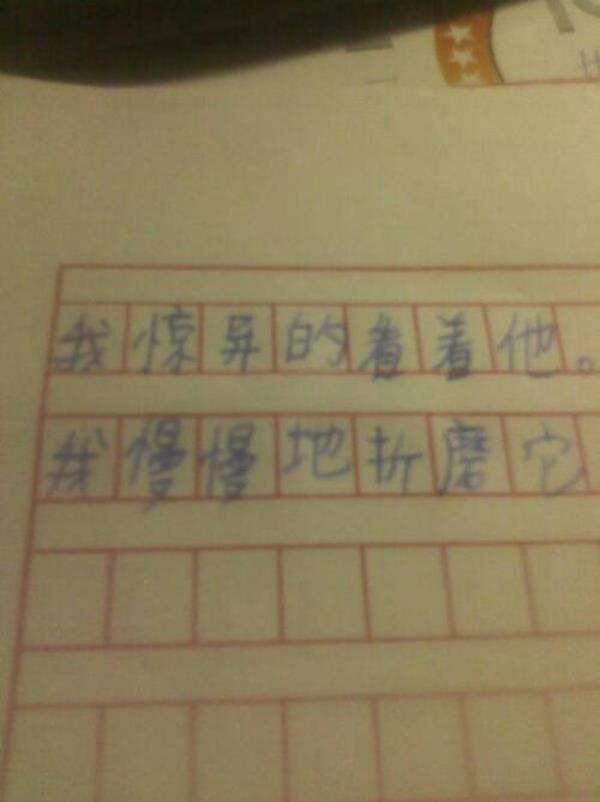 我惊异的看着他。
我慢慢地折磨它